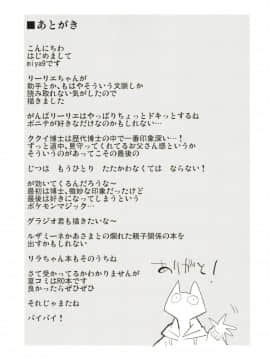 ■あとがき
こんにちわ
はじめまして
miya9です
リーリエちゃんが
助手とか、もはやそういう文脈しか
読み取れない気がしたので
描きました
がんばリーリエはやっぱりちょっとドキッとするね
ポニテが好きなだけなのかもしれない…
ククイ博士は歴代博士の中で一番印象深い…！
ずっと道中、見守ってくれてるお父さん感というか
そういうのがあってこその最後の
じつは　もうひとり　たたかわなくては　ならない！
が効いてくるんだろうな～
最初は博士、微妙な印象だったけど
最後は好きになってしまうという
ポケモンマジック…
グラジオ君も描きたいな～
ルザミーネかあさまとの爛れた親子関係の本を
出すかもしれない
リラちゃん本もそのうちね
さて受かってるかわかりませんが
夏コミはR0本です
良かったらぜひぜひ
それじゃまたね
バイバイ！
ありがと！